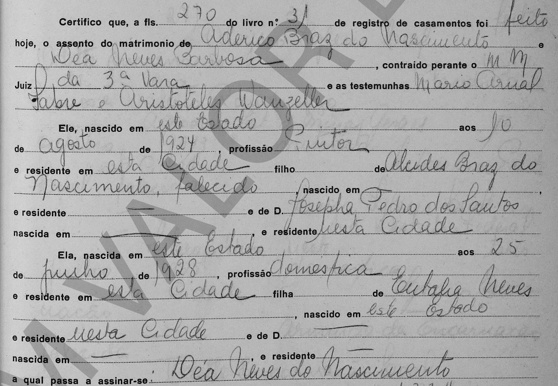 Certifico que, a fls. 270 do livro n.º 31 de registro de casamentos foi feito
hoje, o assento do matrimonio de Aderico Braz do Nascimento e
Déa Neves Barbosa, contraído perante o M M
Juiz da 3ª Vara e as testemunhas Mario
Sabre e Aristoteles Wanzeller
Ele, nascido em este Estado aos 10
de agosto de 1924, profissão Pintor
e residente em esta Cidade filho de Alcides Braz do
Nascimento, falecido, nascido em
e residente e de D. Josepha Pedro dos Santos
nascida em, e residente nesta Cidade
Ela, nascida em este Estado aos 25
de junho de 1928, profissão domestica
e residente em esta Cidade filha de Neves
, nascido em este Estado
e residente nesta Cidade e de D.
nascida em, e residente
a qual passa a assinar-se: Déa Neves do Nascimento
M VALOR